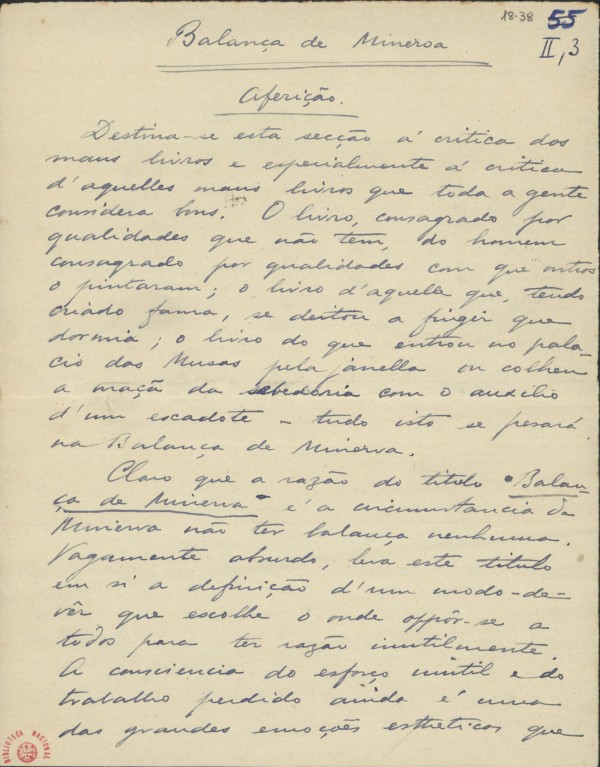 18-38 55
II, 3
Balança de Minerva
Aferição.
Destina-se esta secção á critica dos
maus livros e especialmente á critica
d'aquelles maus livros que toda a gente
considera bons. O livro, consagrado por
qualidades que não tem, do homem
consagrado por qualidades com que outros
o pintaram; o livro d'aquelle que, tendo
criado fama, se deitou a fingir que
dormia; o livro do que entrou no pala-
cio das Musas pela janella ou colheu
a maçã da sabedoria com o auxilio
d'um escadote – tudo isto se pesará
na Balança de Minerva.
Claro que a razão do titulo "Balan-
ça de Minerva" é a circumstancia de
Minerva não ter balança nenhuma.
Vagamente absurdo, leva este titulo
em si a definição d'um modo-de-
vêr que escolhe o onde oppôr-se a
todos para ter razão inutilmente.
A consciencia do esforço inutil e do
trabalho perdido ainda é uma
das grandes emoções estheticas que
BIBLIOTECA NACIONAL